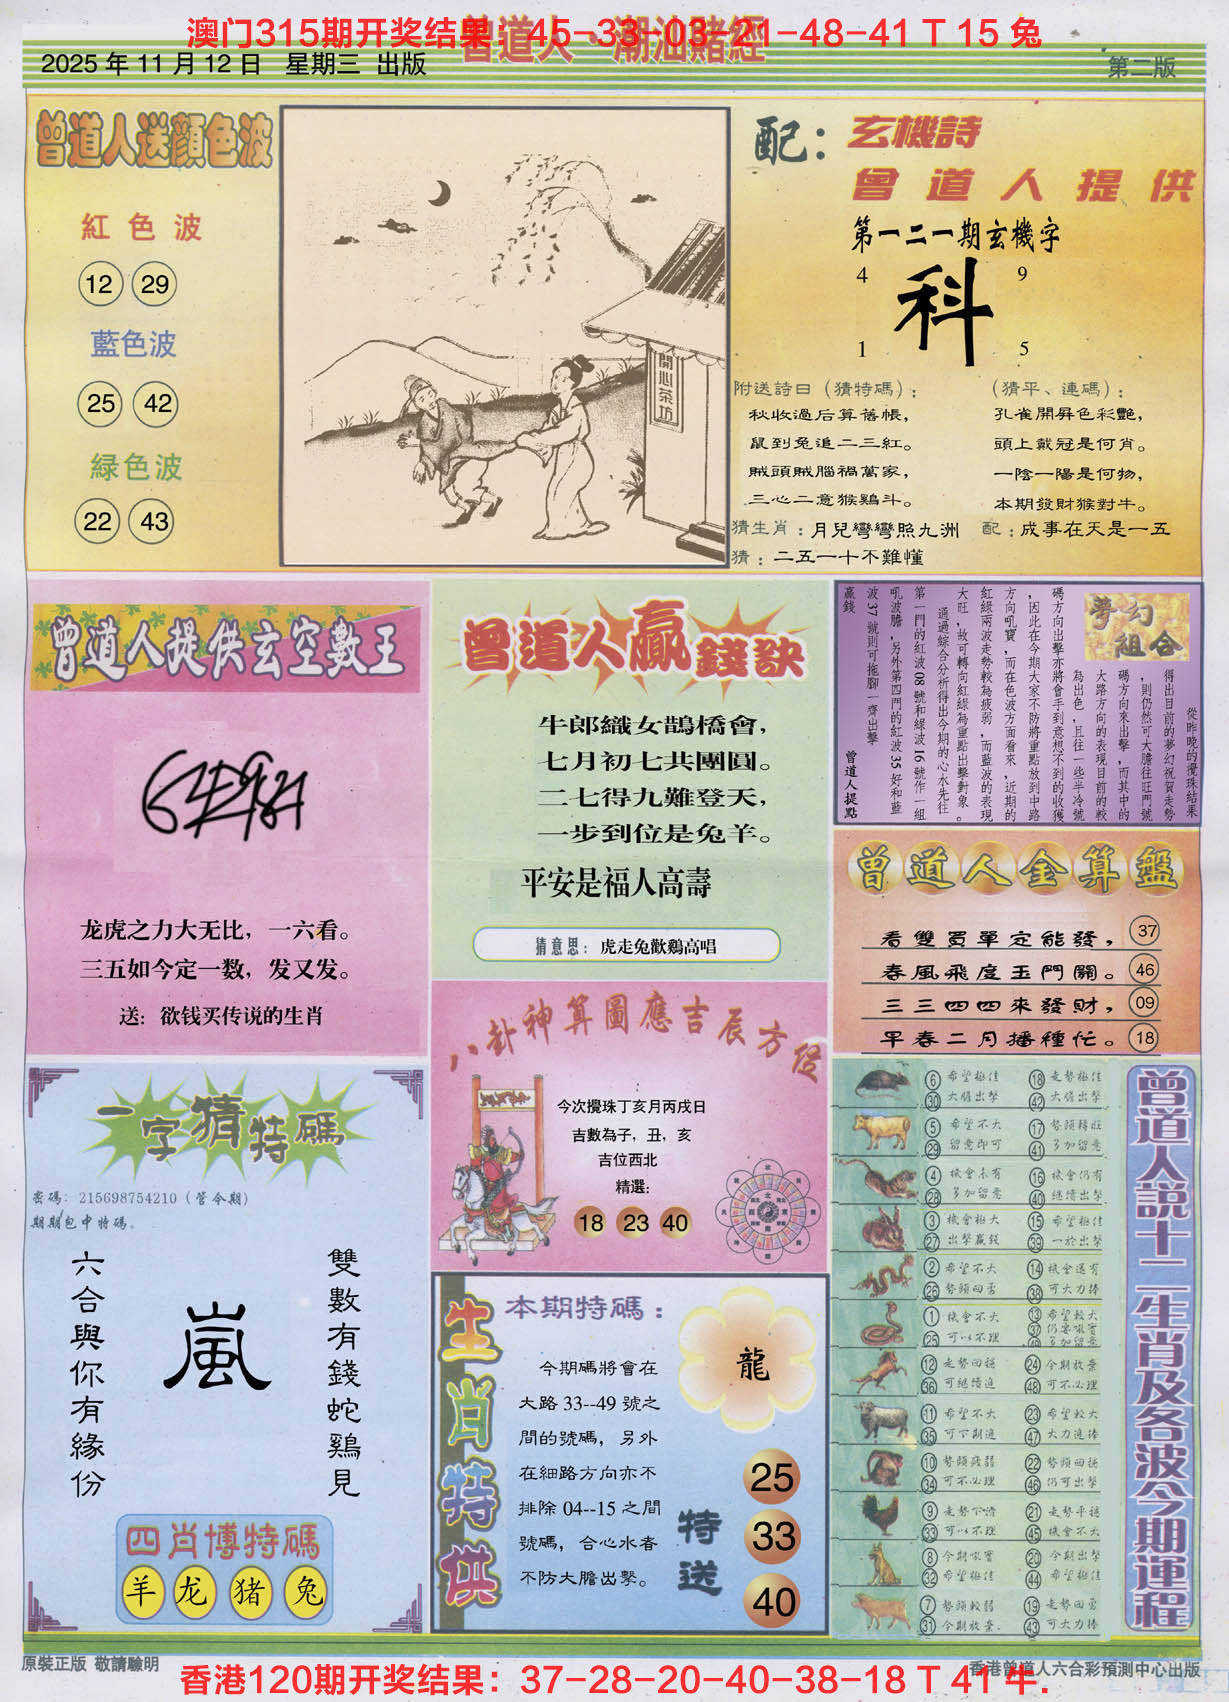 澳门315期开奖结果：45-33-03-21-48-41 T 15 兔
曾道人·潮汕賭經
2025 年 11 月 12 日 星期三 出版
第二版
曾道人送顏色波
紅色波
12 29
藍色波
25 42
緑色波
22 43
開心茶坊
配：玄機詩
曾道人提供
第一二一期玄機字
4 9
科
1 5
附送詩曰（猜特碼）：
秋收過后算舊帳，
鼠到兔追二三紅。
賊頭賊腦禍萬家，
三心二意猴鷄斗。
（猜平、連碼）：
孔雀開屏色彩艷，
頭上戴冠是何肖。
一陰一陽是何物，
本期發財猴對牛。
猜生肖：月兒彎彎照九洲 配：成事在天是一五
猜：二五一十不難懂
曾道人提供玄空數王
龙虎之力大无比，一六看。
三五如今定一数，发又发。
送：欲钱买传说的生肖
曾道人贏錢訣
牛郎織女鵲橋會，
七月初七共團圓。
二七得九難登天，
一步到位是兔羊。
平安是福人高壽
猜意思：虎走兔歡鷄高唱
夢幻組合
從昨晚的攪珠結果
得出目前的夢幻祝賀走勢
，則仍然可大膽往旺門號
碼方向來出擊，而其中的
大路方向的表現目前的較
為出色，且往一些半冷號
碼方向出擊亦將會手到意想不到的收獲
，因此在今期大家不防將重點放到中路
方向吼寶，而在色波方面看來，近期的
紅綠兩波走勢較為疲弱，而藍波的表現
大旺，故可轉向紅綠為重點出擊對象。
通過綜合分析得出今期的心水先往
第一門的紅波 08 號和緑波 16 號作一組
吼波膽，另外第四門的紅波 35 好和藍
波 37 號則可拖腳一齊出擊
贏錢
曾道人提點
曾道人金算盤
看雙買單定能發， 37
春風飛度玉門關。 46
三三四四來發財， 09
早春二月播種忙。 18
一字猜特碼
密碼：215698754210（管令期）
期期包中特碼。
雙數有錢蛇鷄見
嵐
六合與你有緣份
四肖博特碼
羊 龙 猪 兔
八卦神算圖應吉辰方位
今次攪珠丁亥月丙戌日
吉數為子，丑，亥
吉位西北
精選：
18 23 40
生肖特供
本期特碼：
龍
今期碼將會在
大路 33--49 號之
間的號碼，另外
在細路方向亦不
排除 04--15 之間
號碼，合心水者
不防大膽出擊。
特送
25
33
40
曾道人説十二生肖及各波今期運程
6 希望極佳 18 走勢極佳
30 大膽出擊 42 大膽出擊
5 希望不大 17 勢頭轉旺
29 留意即可 41 多加留意
4 機會未有 16 機會仍有
28 多加留意 40 繼續出擊
3 機會極大 15 希望極佳
27 出擊贏錢 39 一於出擊
2 希望不大 14 機會還有
26 勢頭回落 38 可大力捧
1 機會不大 13 希望較大
25 可以不理
12 走勢回穩 24 今期放棄
36 可繼續追 48 可不必理
11 希望不大 23 希望較大
35 可下期追 47 大力追捧
10 勢頭疲弱 22 勢頭回穩
34 可不必理 46 仍可出擊
9 走勢下滑 21 走勢平穩
33 可以不理 45 機會不大
8 今期吼寶 20 今期出擊
32 希望極佳 44 希望極佳
7 勢頭較弱 19 走勢回落
31 今期放棄. 43 可大力捧
原裝正版 敬請驗明
香港120期开奖结果：37-28-20-40-38-18 T 41 牛.
香港曾道人六合彩預測中心出版